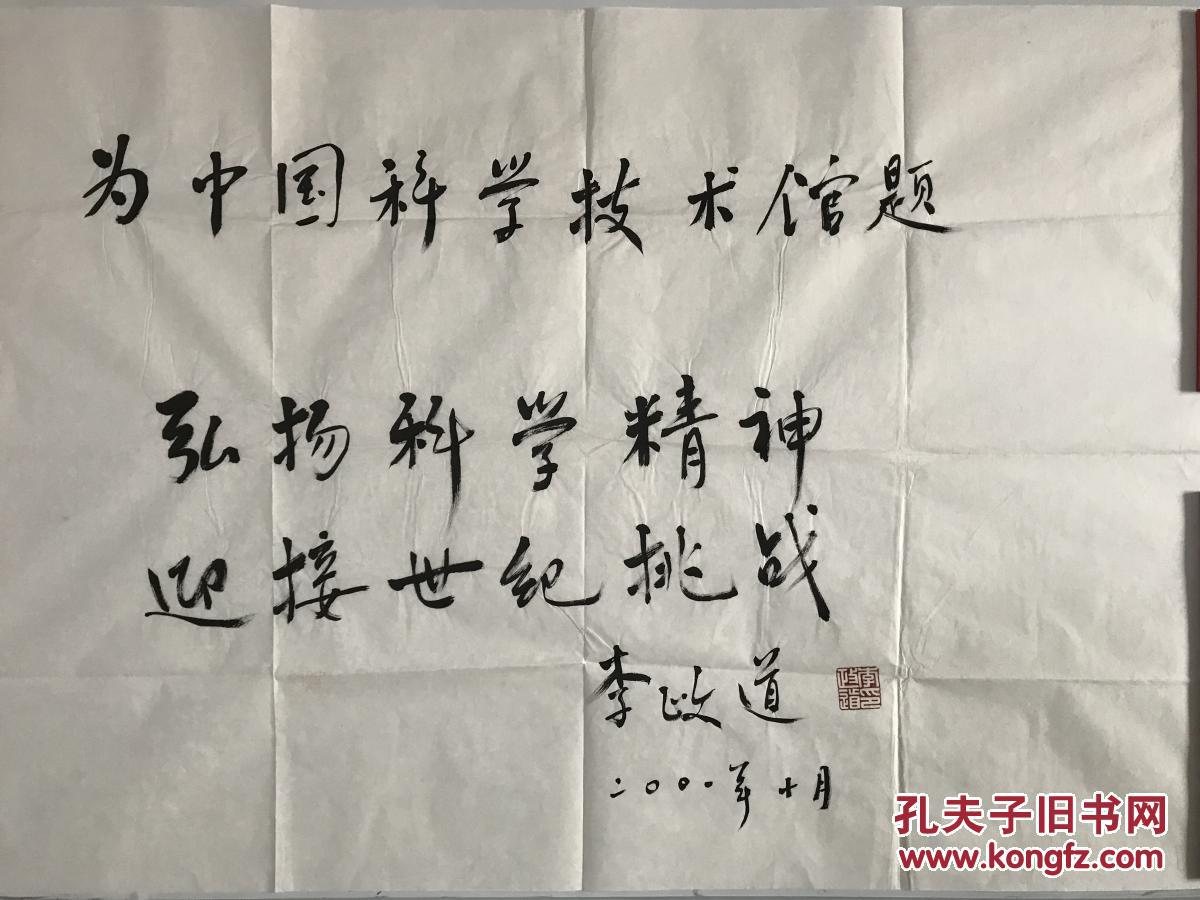 为中国科学技术馆题
弘扬科学精神
迎接世纪挑战
李政道
李政道印
二〇〇一年十月
孔夫子旧书网
www.kongfz.com